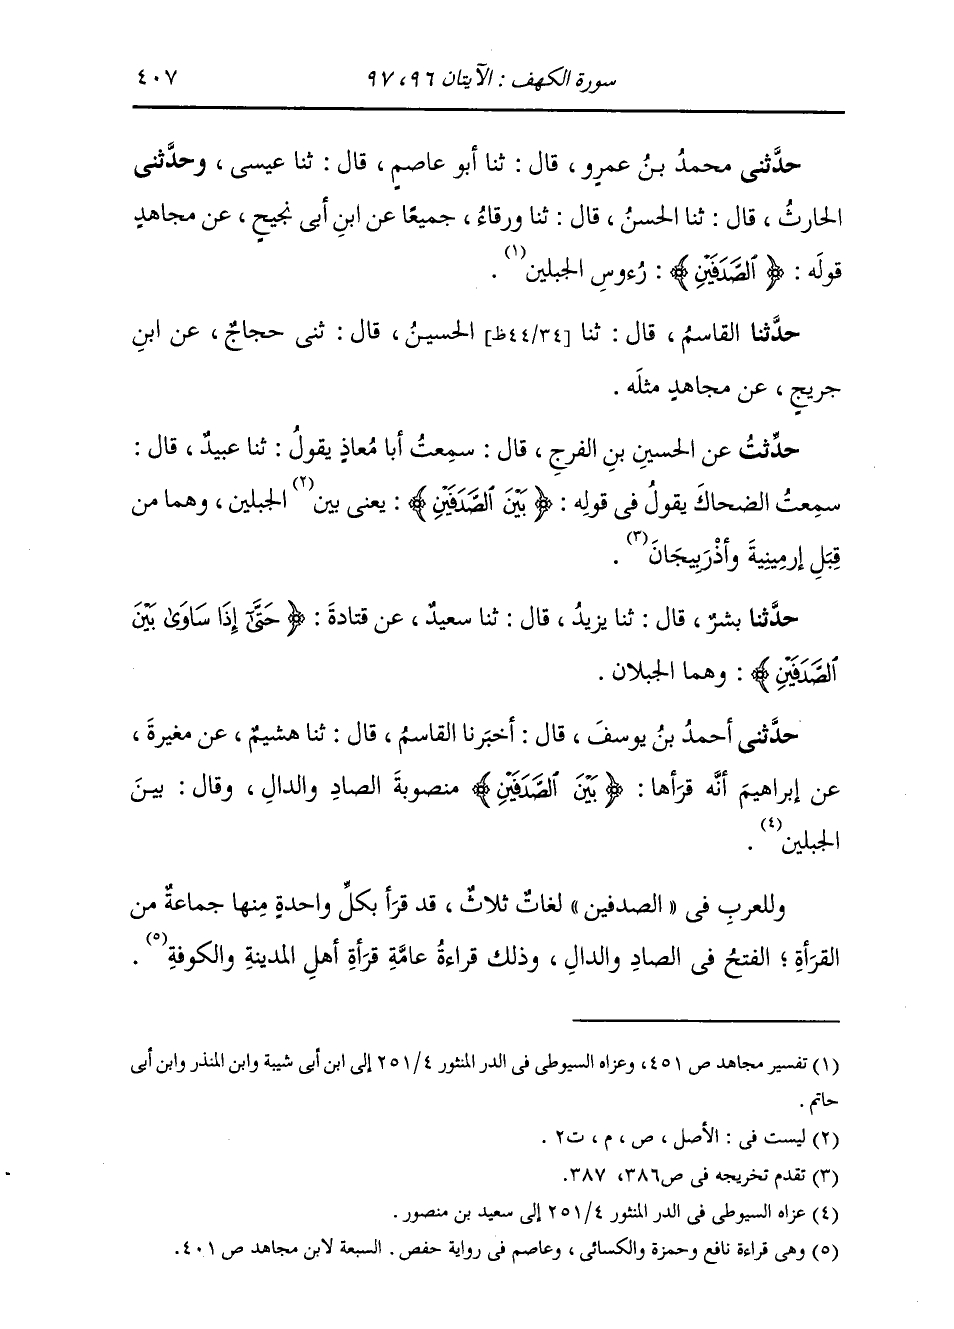 سورة الكهف : الآيتان ٩٦، ٩٧
٤٠٧
حدَّثنى محمدُ بنُ عمرٍو ، قال : ثنا أبو عاصمٍ ، قال : ثنا عيسى ، وحدَّثنى
الحارثُ ، قال : ثنا الحسنُ ، قال : ثنا ورقاءُ ، جميعًا عن ابنِ أبى نجيحٍ ، عن مجاهدٍ
قولَه : ﴿ ٱلصَّدَفَيْنِ ﴾ : رُءوسِ الجبلين(١) .
حدَّثنا القاسمُ ، قال : ثنا [٤٤/٣٤ظ] الحسينُ ، قال : ثنى حجاجٌ ، عن ابنِ
جريجٍ ، عن مجاهدٍ مثلَه .
حدِّثتُ عن الحسينِ بنِ الفرجِ ، قال : سمِعتُ أبا مُعاذٍ يقولُ : ثنا عبيدٌ ، قال :
سمِعتُ الضحاكَ يقولُ فى قولِه : ﴿ بَيْنَ ٱلصَّدَفَيْنِ ﴾ : يعنى بين(٢) الجبلين ، وهما من
قِبَلِ إرمِينِيةَ وأذْرَبِيجَانَ(٣) .
حدَّثنا بشرٌ ، قال : ثنا يزيدُ ، قال : ثنا سعيدٌ ، عن قتادةَ : ﴿ حَتَّىٰٓ إِذَا سَاوَىٰ بَيْنَ
ٱلصَّدَفَيْنِ ﴾ : وهما الجبلان .
حدَّثنى أحمدُ بنُ يوسفَ ، قال : أخبَرنا القاسمُ ، قال : ثنا هشيمٌ ، عن مغيرةَ ،
عن إبراهيمَ أنَّه قرَأها : ﴿ بَيْنَ ٱلصَّدَفَيْنِ ﴾ منصوبةَ الصادِ والدالِ ، وقال : بينَ
الجبلين(٤) .
وللعربِ فى « الصدفين » لغاتٌ ثلاثٌ ، قد قرَأ بكلِّ واحدةٍ مِنها جماعةٌ من
القرَأةِ ؛ الفتحُ فى الصادِ والدالِ ، وذلك قراءةُ عامَّةِ قرَأةِ أهلِ المدينةِ والكوفةِ(٥) .
(١) تفسير مجاهد ص ٤٥١، وعزاه السيوطى فى الدر المنثور ٢٥١/٤ إلى ابن أبى شيبة وابن المنذر وابن أبى
حاتم .
(٢) ليست فى : الأصل ، ص ، م ، ت٢ .
(٣) تقدم تخريجه فى ص٣٨٦، ٣٨٧.
(٤) عزاه السيوطى فى الدر المنثور ٢٥١/٤ إلى سعيد بن منصور .
(٥) وهى قراءة نافع وحمزة والكسائى ، وعاصم فى رواية حفص . السبعة لابن مجاهد ص ٤٠١.